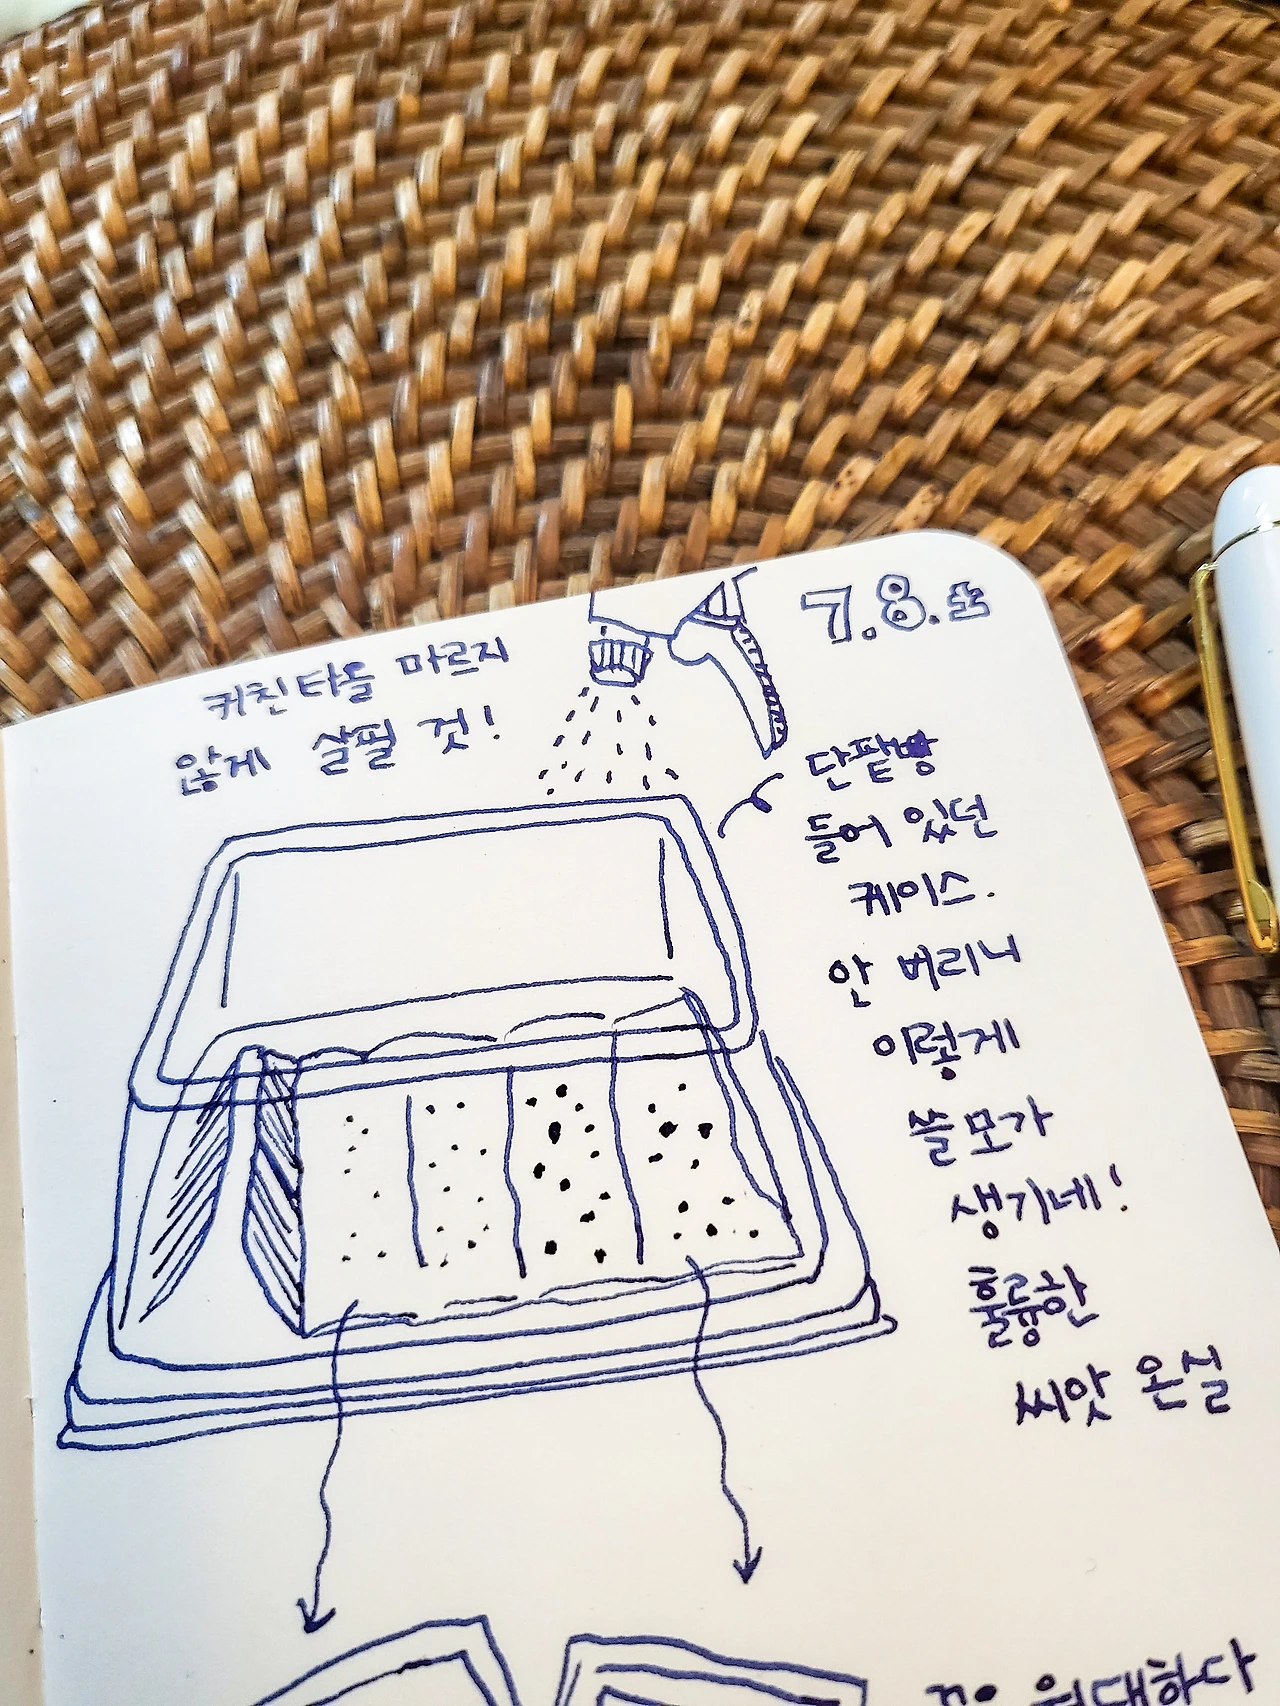 7.8.토
키친타올 마르지
않게 살필 것!
단팥빵
들어 있던
케이스.
안 버리니
이렇게
쓸모가
생기네!
훌륭한
씨앗 온실
원대하다